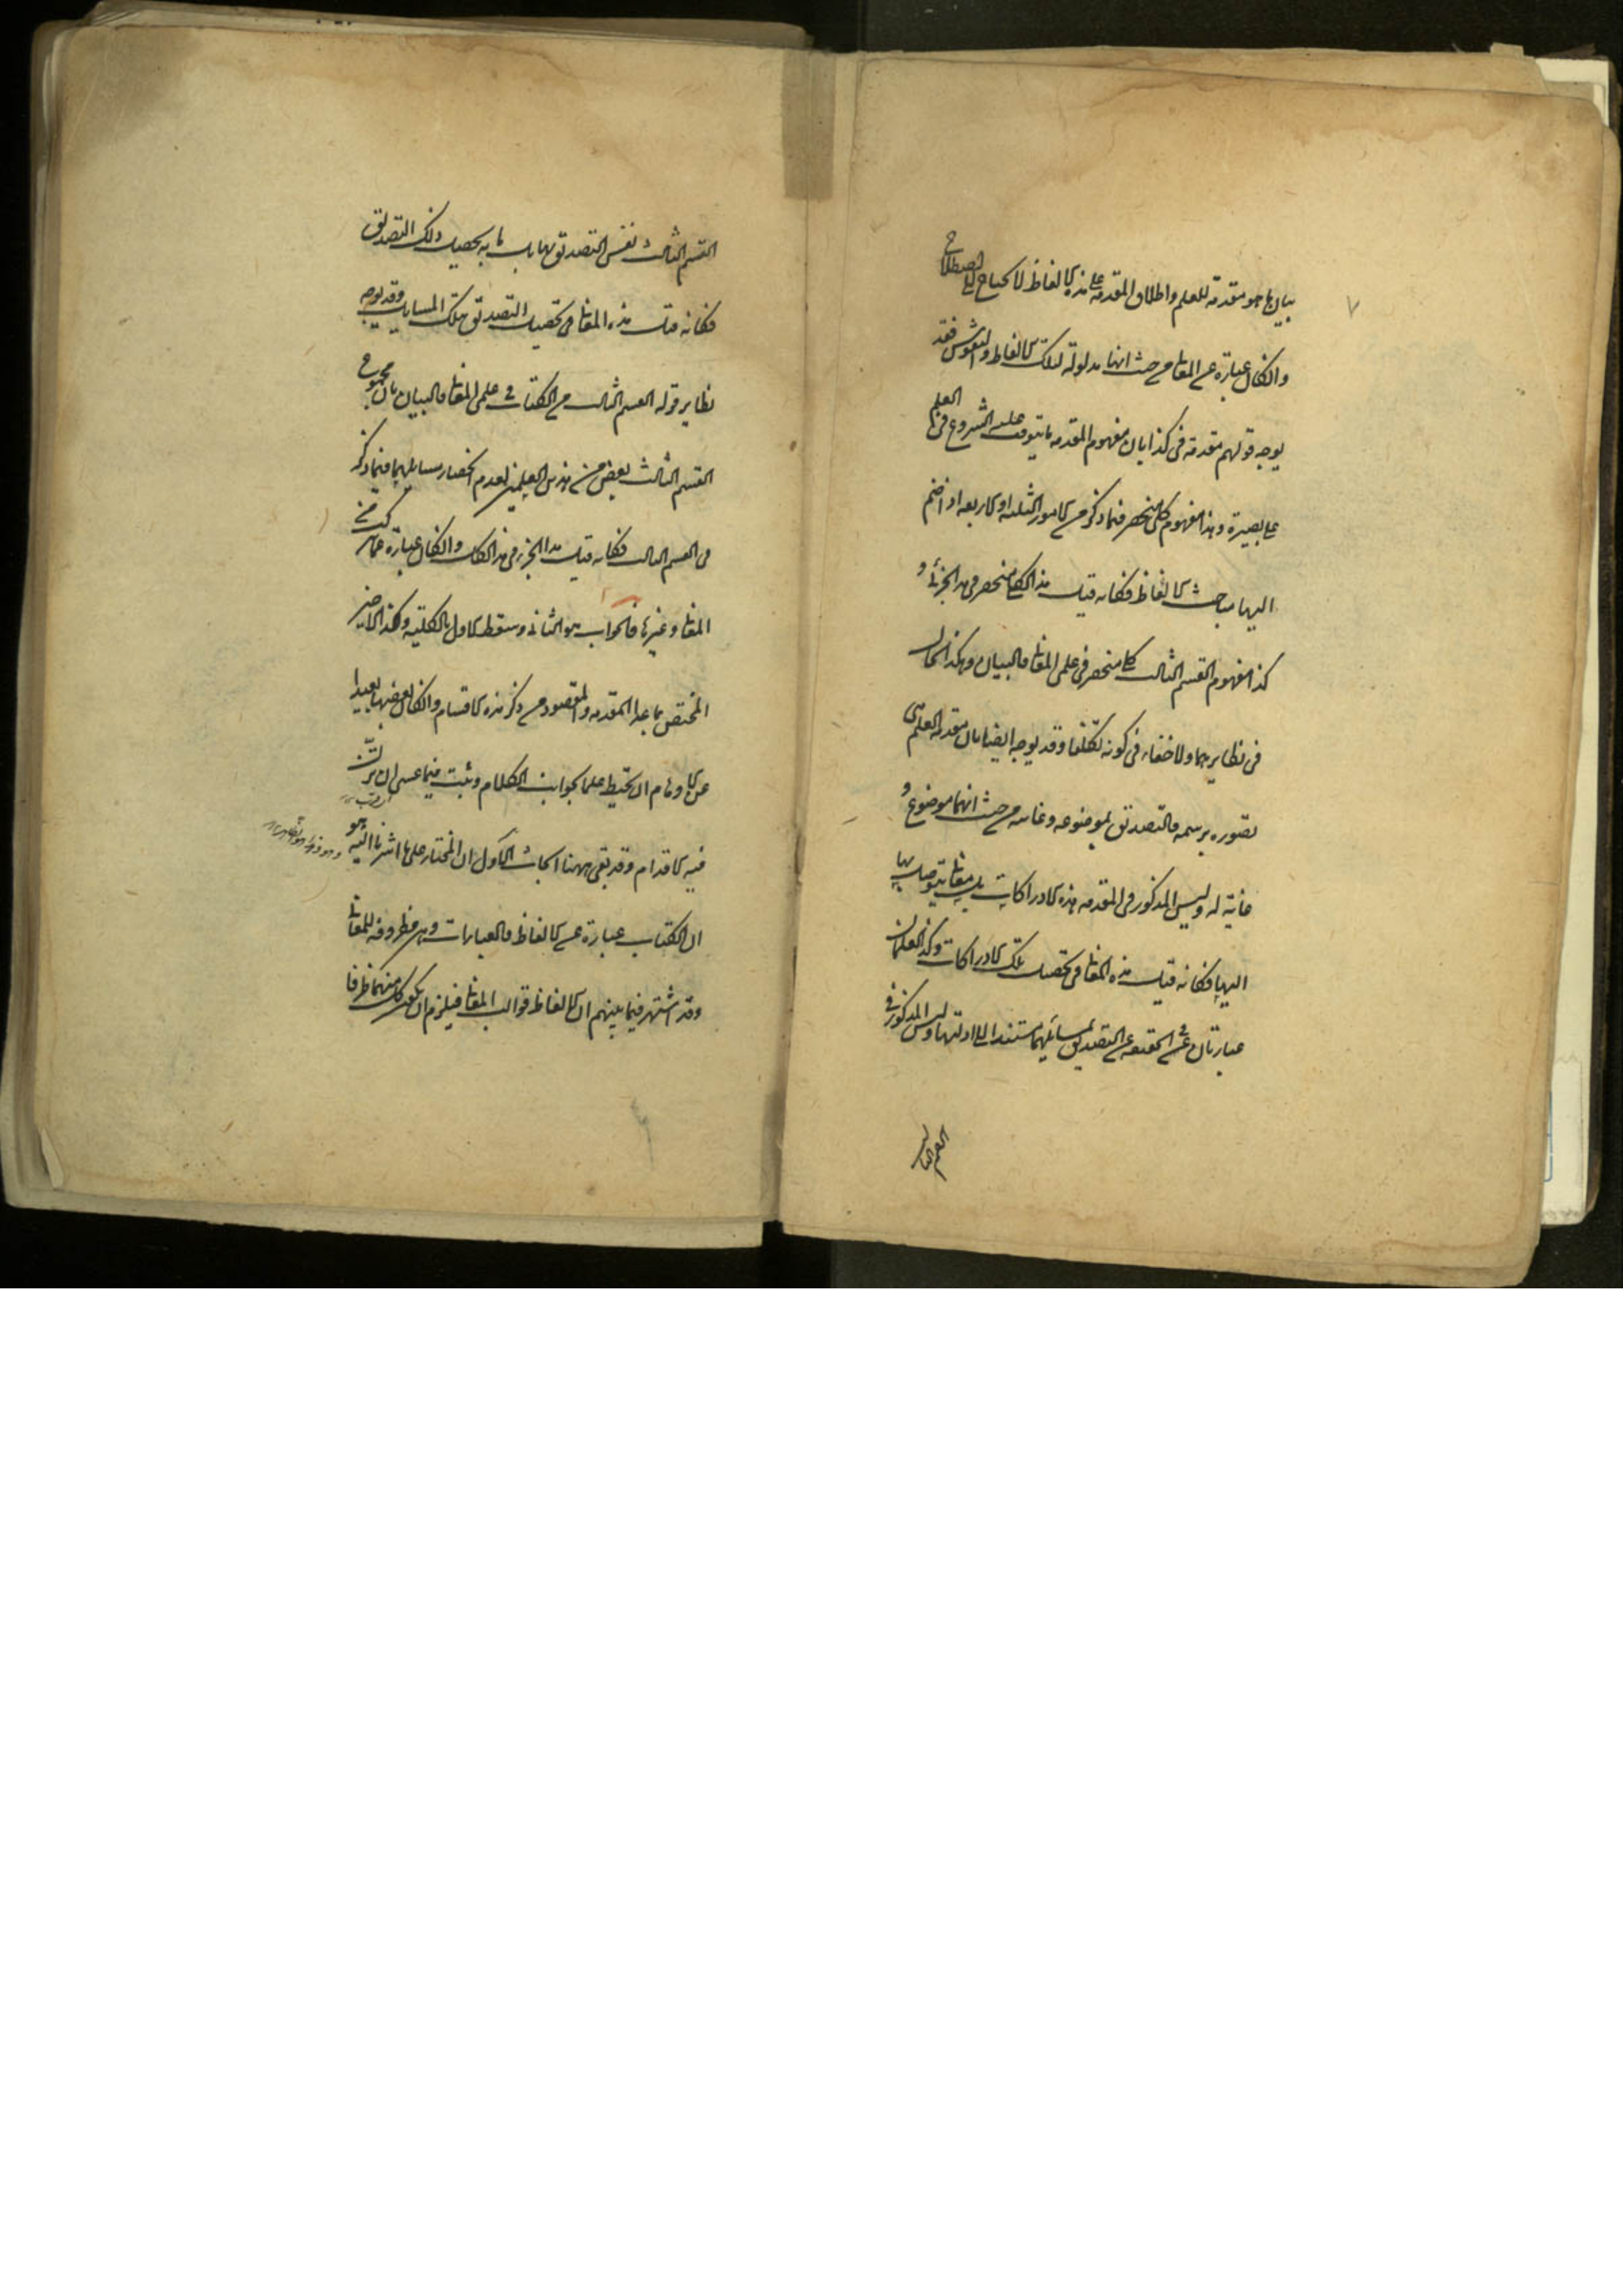 ٧
بيان ما هو مقدمة للعلم واطلاق المقدمة على هذه الالفاظ لا يحتاج الى اصطلاح
وان كان عبارة عن المعانى من حيث انها مدلولة لتلك الالفاظ والنقوش فقد
يوجه قولهم مقدمة فى كذا بان مفهوم المقدمة ما يتوقف عليه الشروع فى العلم
على بصيرة وهذا مفهوم كلى منحصر فيما ذكر من الامور الثلثة او الاربعة اذا ضم
اليها مباحث الالفاظ فكانه قيل هذا الكلى منحصر فى هذا الجزئى و
كذا مفهوم القسم الثالث كلى منحصر فى علمى المعانى والبيان وهكذا الحال
فى نظايرهما ولا خفاء فى كونه تكلفا وقد يوجه ايضا بان مقدمة العلم هى
تصوره برسمه والتصديق بموضوعه وغايته من حيث انهما موضوع و
غاية له وليس المذكور فى المقدمة هذه الادراكات بل معانى يتوصل بها
اليها فكانه قيل هذه المعانى فى تحصيل تلك الادراكات وكذا العلمان
عبارتان فى الحقيقة عن التصديق بمسائلهما مستندا الى ادلتها وليس المذكور فى
القسم الثالث
القسم الثالث نفس التصديق بها بل ما به يحصل ذلك التصديق
فكانه قيل هذه المعانى فى تحصيل التصديق بتلك المسايل وقد يوجه
نظاير قوله القسم الثالث من الكتاب فى علمى المعانى والبيان بان مجموع
القسم الثالث بعض من هذين العلمين لعدم انحصار مسايلهما فيما ذكر
فى القسم الثالث فكانه قيل هذا الجزء فى هذا الكل وان كان عبارة عما تركب من
المعانى وغيرها فالجواب هو الثانى وسقط الاول بالكلية وكذا الاخير
المختص بما عدا المقدمة والمقصود من ذكر هذه الاقسام وان كان بعضها بعيدا
عن الاوهام ان تحيط علما بجوانب الكلام وتثبت فيما عسى ان تزل
فيه الاقدام وقد بقى ههنا ابحاث الاول ان المختار على ما اشرنا اليه هو
ان الكتاب عبارة عن الالفاظ والعبارات وهى مظروفة للمعانى
وقد اشتهر فيما بينهم ان الالفاظ قوالب المعانى فيلزم ان يكون كل منهما ظرفا